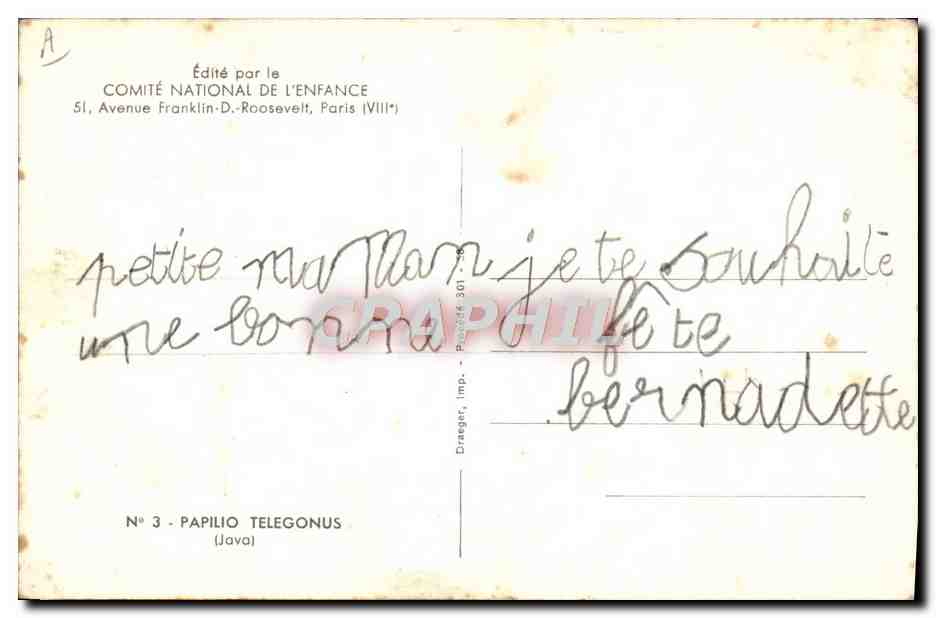 A
Édité par le
COMITÉ NATIONAL DE L'ENFANCE
51, Avenue Franklin-D.-Roosevelt, Paris (VIIIᵉ)
petite maman je te souhaite
une bonne fête
bernadette
Draeger, Imp. - Procédé 301 - 38
CPAPHIL
Nº 3 - PAPILIO TELEGONUS
(Java)